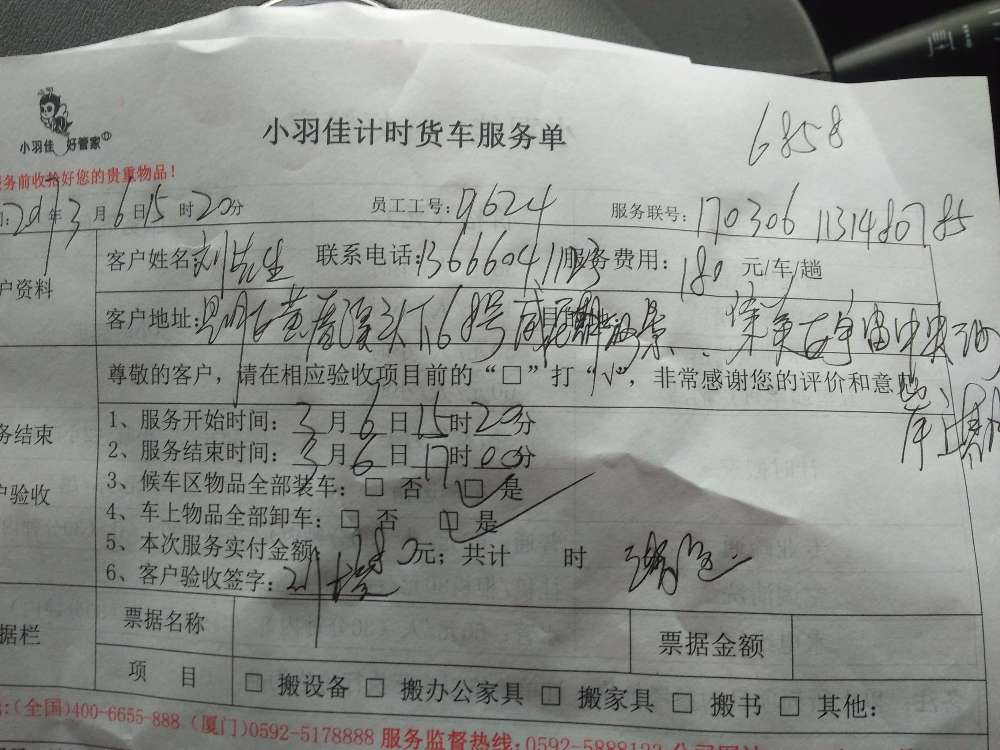 小羽佳 好管家
小羽佳计时货车服务单
6858
务前收拾好您的贵重物品！
年3月6日15时20分 员工工号：9624 服务联号：170306 1131480785
户资料
客户姓名 刘先生 联系电话：13666041123 服务费用：180元/车/趟
客户地址：68号
尊敬的客户，请在相应验收项目前的“□”打“√”，非常感谢您的评价和意见
务结束
户验收
1、服务开始时间：3月6日15时20分
2、服务结束时间：3月6日17时00分
3、候车区物品全部装车：□ 否 □ 是
4、车上物品全部卸车：□ 否 □ 是
5、本次服务实付金额 元；共计 时
6、客户验收签字：
据栏
票据名称 票据金额
项 目 □ 搬设备 □ 搬办公家具 □ 搬家具 □ 搬书 □ 其他：
(全国)400-6655-888 (厦门)0592-5178888 服务监督热线:0592-5888123